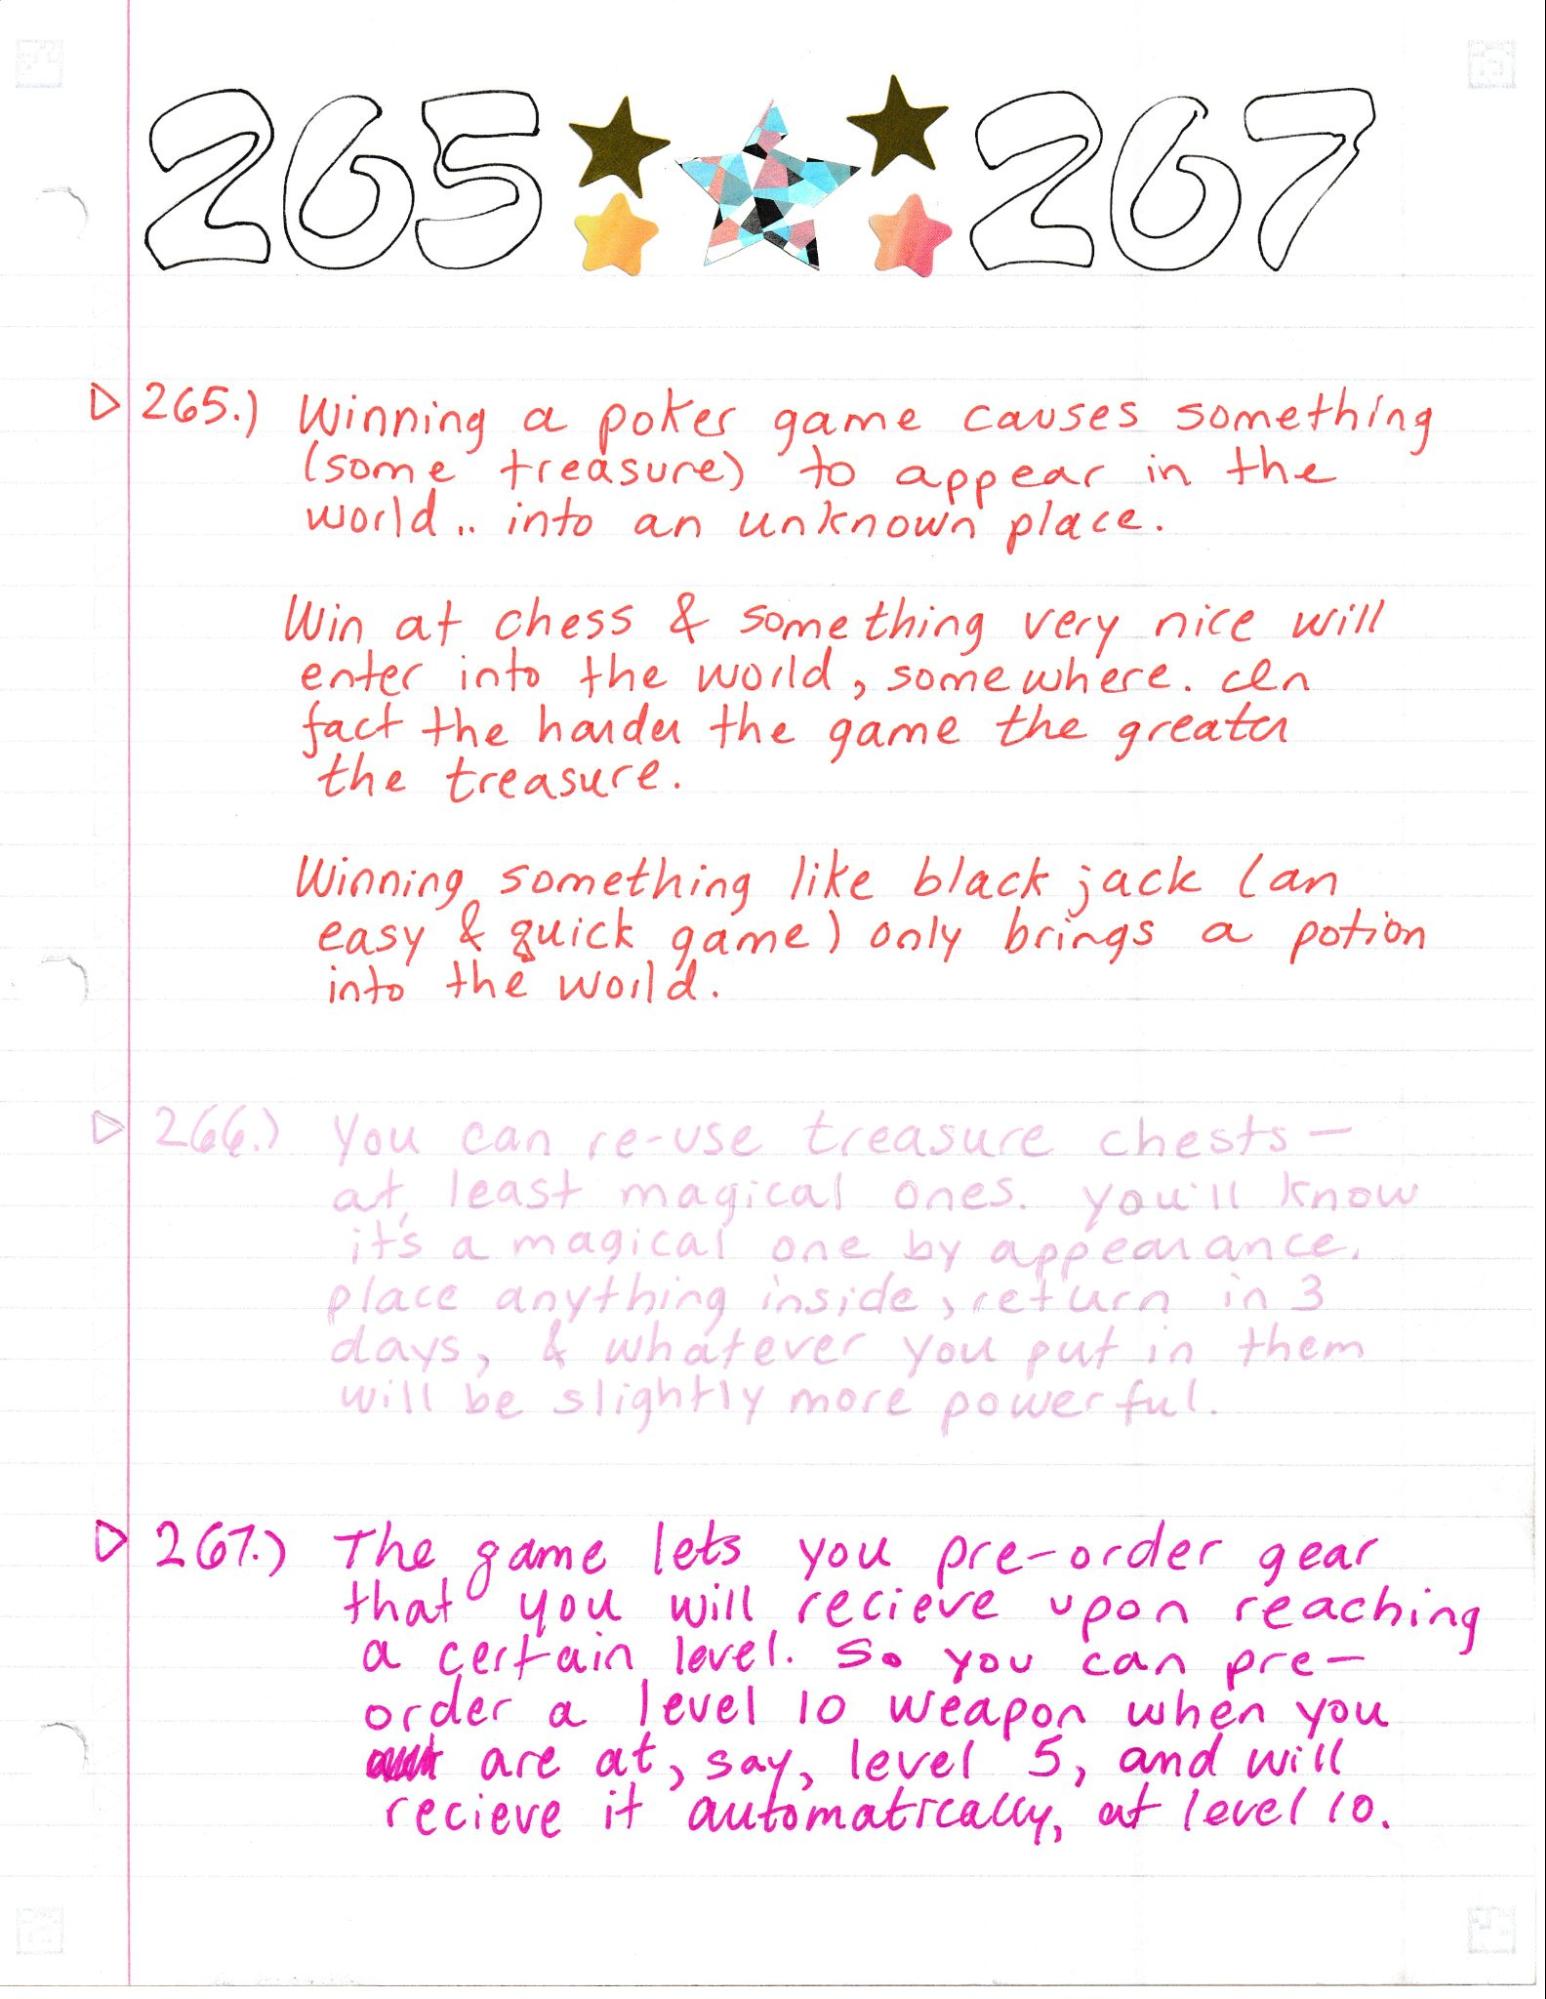 265 267
265.) Winning a poker game causes something
(some treasure) to appear in the
world.. into an unknown place.
Win at chess & something very nice will
enter into the world, somewhere. In
fact the harder the game the greater
the treasure.
Winning something like black jack (an
easy & quick game) only brings a potion
into the world.
266.) You can re-use treasure chests—
at least magical ones. you'll know
it's a magical one by appearance.
place anything inside, return in 3
days, & whatever you put in them
will be slightly more powerful.
267.) The game lets you pre-order gear
that you will recieve upon reaching
a certain level. So you can pre-
order a level 10 weapon when you
are at, say, level 5, and will
recieve it automatically, at level 10.